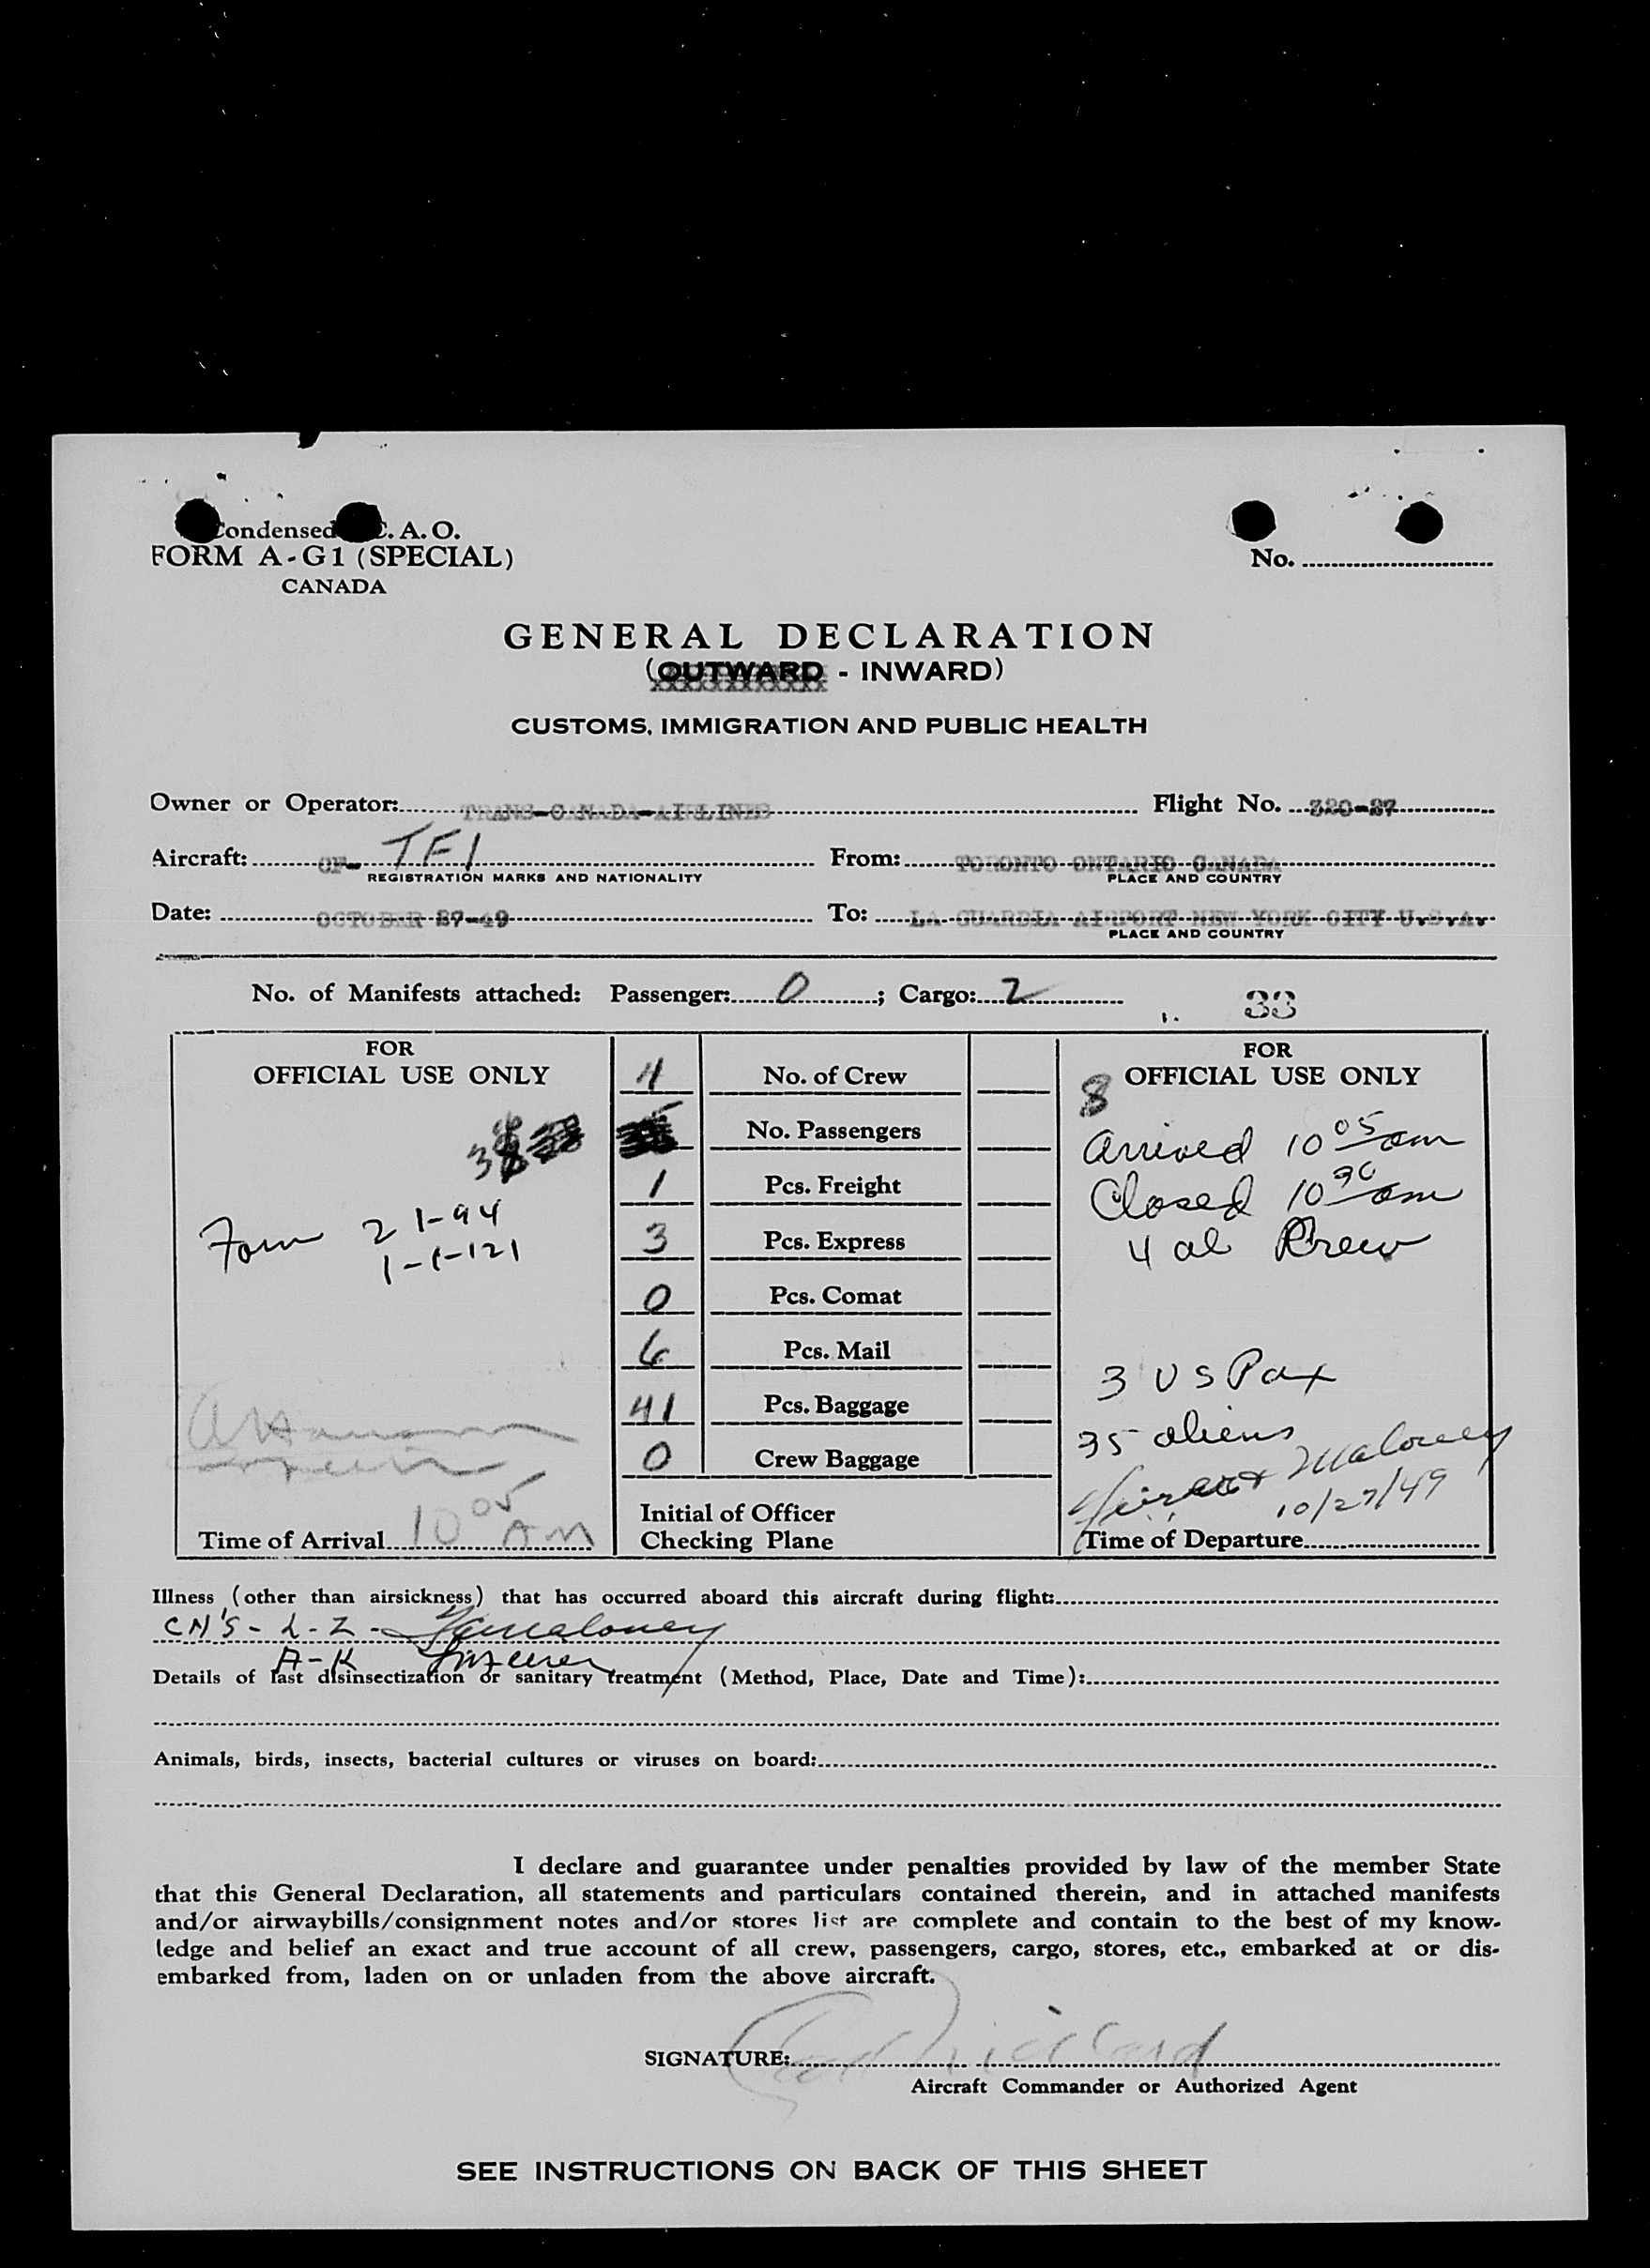 Condensed C. A. O.
FORM A-G1 (SPECIAL)
CANADA
No.
GENERAL DECLARATION
(OUTWARD - INWARD)
CUSTOMS, IMMIGRATION AND PUBLIC HEALTH
Owner or Operator: TRANS-CANADA-AIRLINES Flight No. 320-27
Aircraft: CF- TFI From: TORONTO ONTARIO CANADA
REGISTRATION MARKS AND NATIONALITY PLACE AND COUNTRY
Date: OCTOBER 27-49 To: LA GUARDIA AIRPORT NEW YORK CITY U.S.A.
PLACE AND COUNTRY
No. of Manifests attached: Passenger: 0; Cargo: 2
33
FOR
OFFICIAL USE ONLY
Form 2 1-94
1-1-121
Time of Arrival 10 05 AM
4 No. of Crew
No. Passengers
1 Pcs. Freight
3 Pcs. Express
0 Pcs. Comat
6 Pcs. Mail
41 Pcs. Baggage
0 Crew Baggage
Initial of Officer
Checking Plane
FOR
8 OFFICIAL USE ONLY
Arrived 10 05 am
Closed 10 30 am
4 al Crew
3 US Pax
35 aliens
Maloney
10/27/49
Time of Departure
Illness (other than airsickness) that has occurred aboard this aircraft during flight:
CN'S - L-Z - Maloney
A-K
Details of last disinsectization or sanitary treatment (Method, Place, Date and Time):
Animals, birds, insects, bacterial cultures or viruses on board:
I declare and guarantee under penalties provided by law of the member State
that this General Declaration, all statements and particulars contained therein, and in attached manifests
and/or airwaybills/consignment notes and/or stores list are complete and contain to the best of my know-
ledge and belief an exact and true account of all crew, passengers, cargo, stores, etc., embarked at or dis-
embarked from, laden on or unladen from the above aircraft.
SIGNATURE:
Aircraft Commander or Authorized Agent
SEE INSTRUCTIONS ON BACK OF THIS SHEET